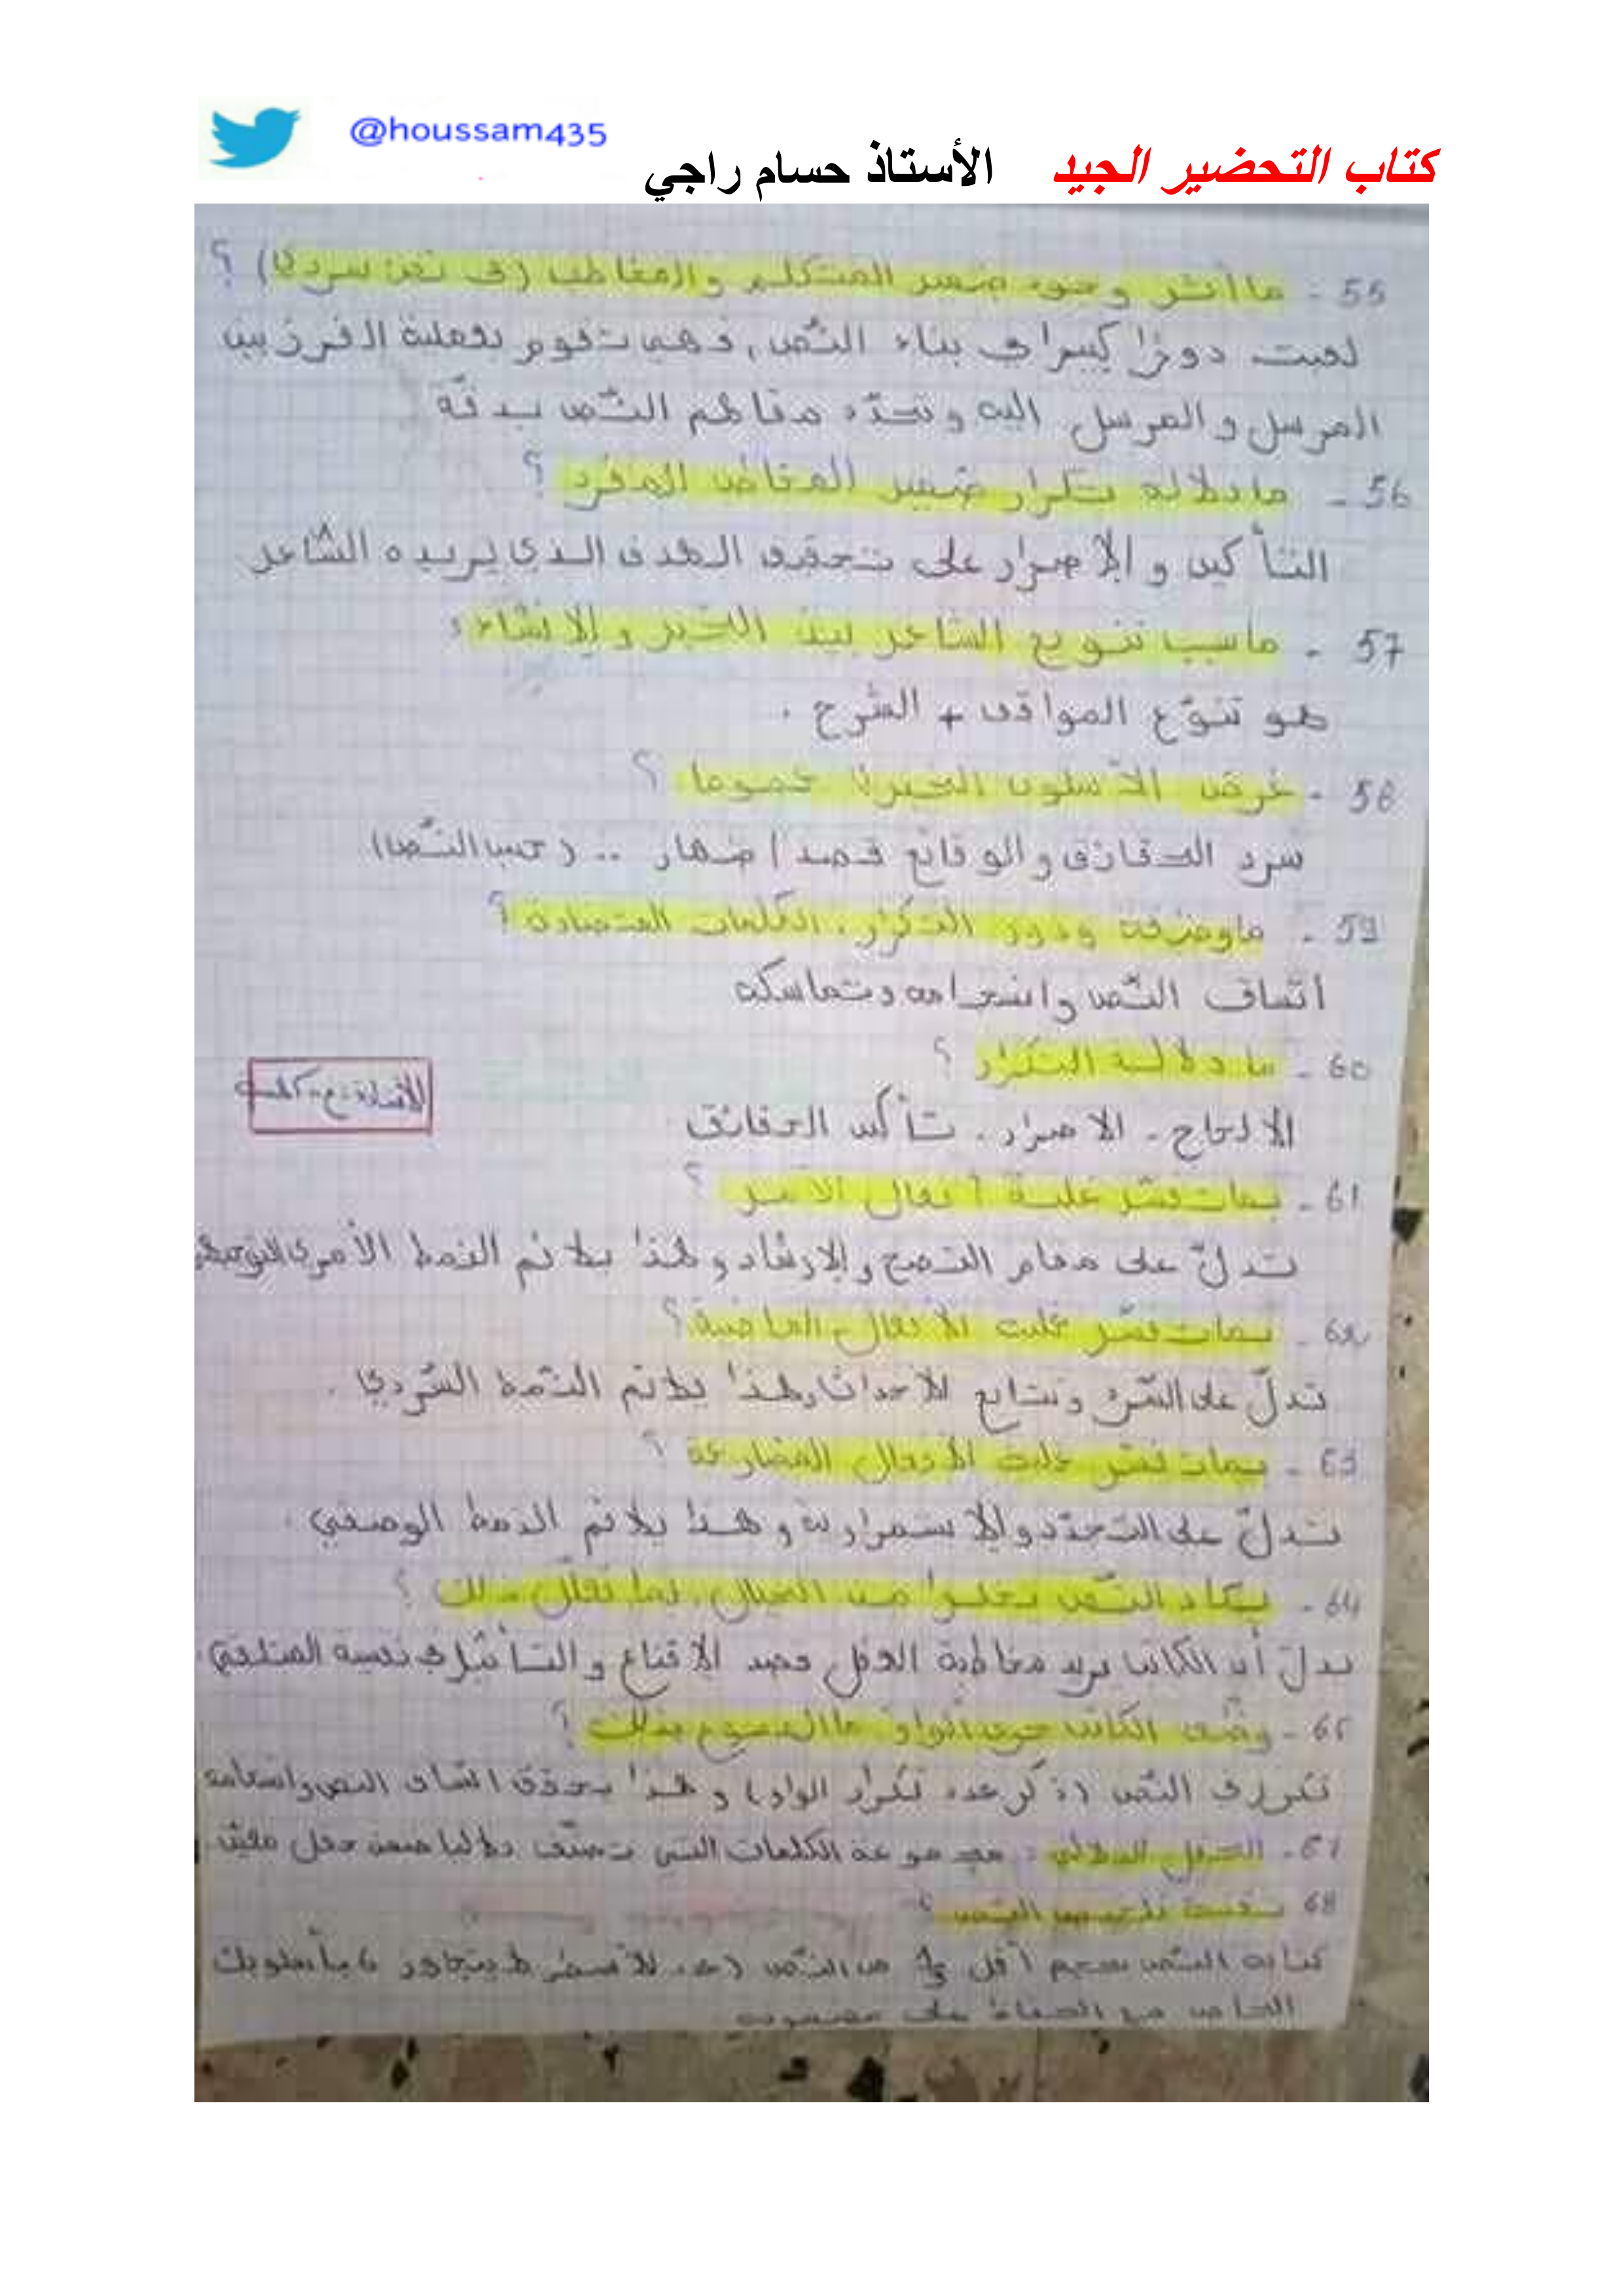 @houssam435
كتاب التحضير الجيد الأستاذ حسام راجي
55 - ما أثر وجود ضمير المتكلم والمخاطب (في نص سردي) ؟
لعبت دورًا كبيرا في بناء النّص، فهي تقوم بعملية الفرز بين
المرسل والمرسل إليه وتحدّد معالم النّص بدقّة
56 - ما دلالة تكرار ضمير المخاطب المفرد ؟
التأكيد والإصرار على تحقيق الهدف الذي يريده الشاعر
57 - ما سبب تنويع الشاعر بين الخبر والإنشاء ؟
هو تنوّع المواقف + الشرح .
58 - غرض الأسلوب الخبري عموما ؟
سرد الحقائق والوقائع قصد إظهار .. (حسب النّص)
59 - ما وظيفة ودور التكرار، الكلمات المتضادة ؟
اتساق النّص وانسجامه وتماسكه
60 - ما دلالة التكرار ؟
الإلحاح - الإصرار - تأكيد الحقائق
61 - بمات فسّر غلبة أفعال الأمر ؟
تدلّ على مقام النصح والإرشاد وهذا يلائم النمط الأمري التوجيهي
62 - بمات فسّر غلبت الأفعال الماضية ؟
تدلّ على السّرد وتتابع الأحداث وهذا يلائم النّمط السّردي .
63 - بمات فسّر غلبت الأفعال المضارعة ؟
تدلّ على التجدّد والإستمرارية وهذا يلائم النمط الوصفي .
64 - يكاد النّص يخلوا من الخيال، بما تعلّل ذلك ؟
يدلّ أن الكاتب يريد مخاطبة العقل قصد الإقناع والتأثير في نفسية المتلقي.
65 - وظّف الكاتب حرف الواو ما المسوغ بذلك ؟
تكرر في النّص (ذكر عدد تكرار الواو) وهذا يحقق اتساق النص وانسجامه
67 - الحقل الدلالي : مجموعة الكلمات التي تصنّف دلاليا ضمن حقل معيّن
68 تقنية تلخيص النّص ؟
كتابة النّص بحجم أقل من النّص (عدد الأسطر لا يتجاوز ) بأسلوبك
الخاص مع الحفاظ على مضمونه